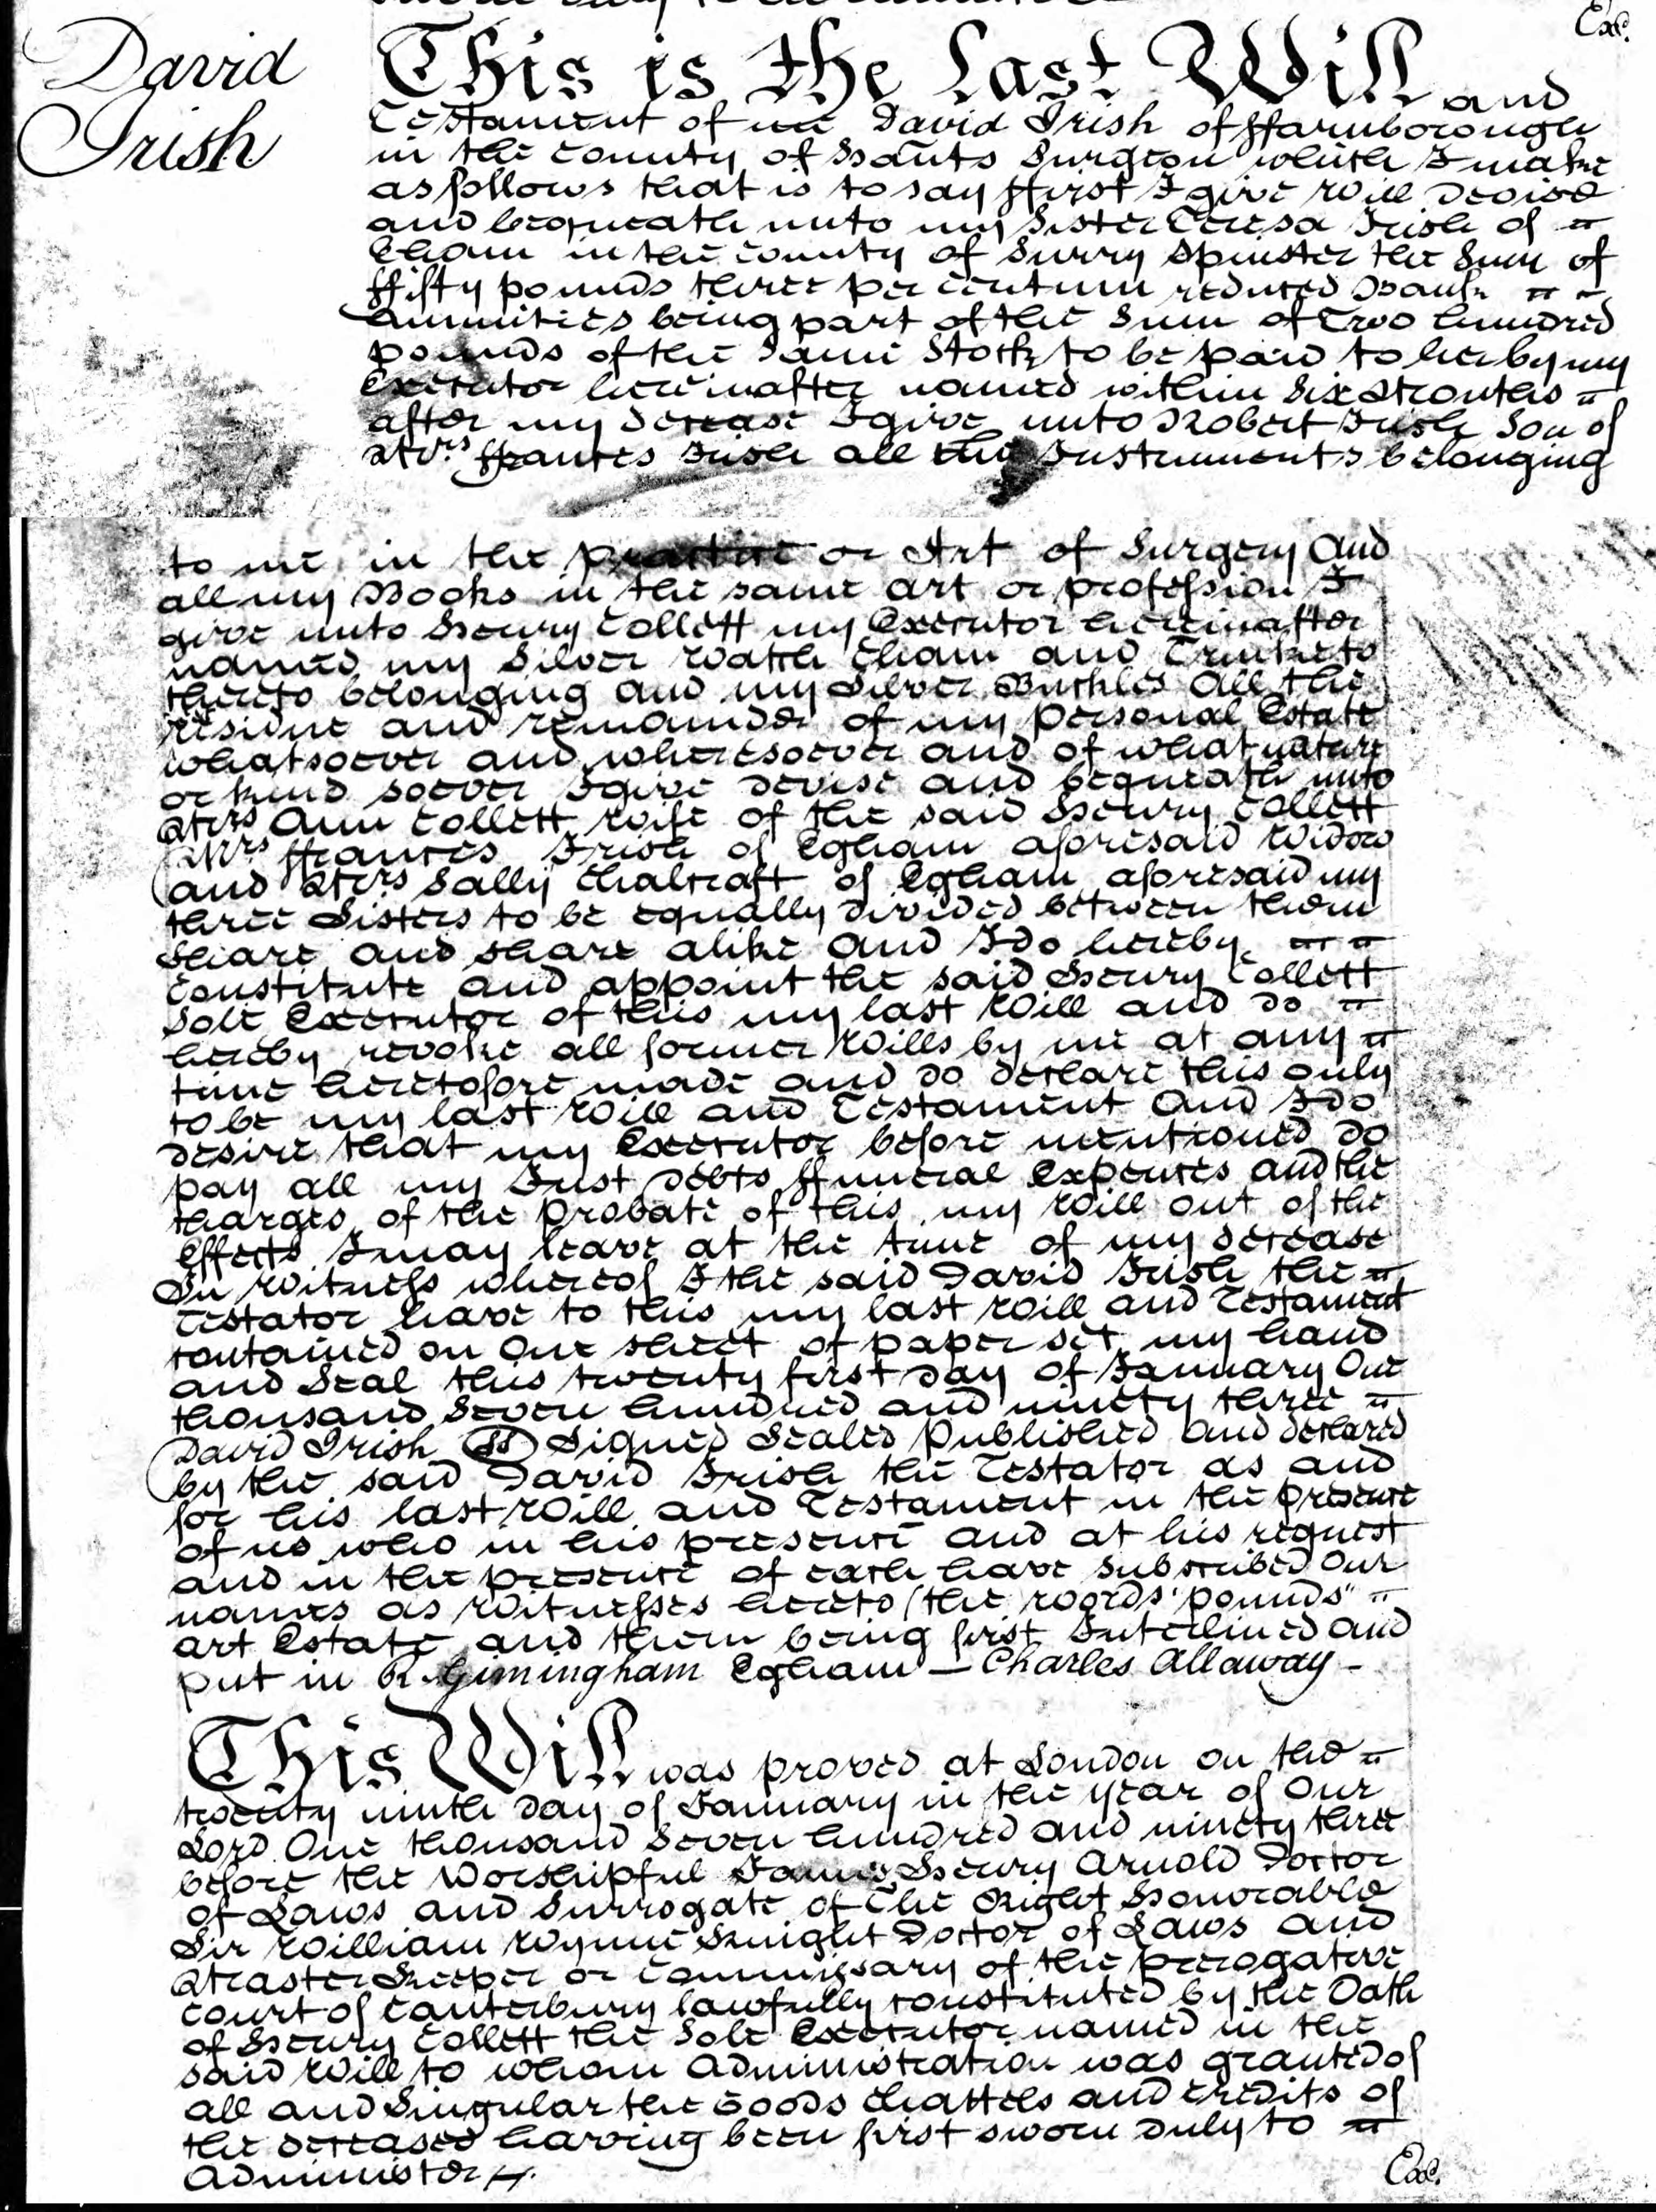 David
Irish
Exd.
This is the Last Will and
Testament of me David Irish of ffarnborough
in the County of Hants Surgeon which I make
as follows that is to say ffirst I give Will Devise
and bequeath unto my Sister Teresa Irish of
Egham in the County of Surry Spinster the Sum of
ffifty pounds three per Centum reduced Bank
Annuities being part of the Sum of Two hundred
pounds of the same Stock to be paid to her by my
Executor hereinafter named within Six Months
after my decease I give unto Robert Irish Son of
Mrs. ffrances Irish all the Instruments belonging
to me in the practice or Art of Surgery And
all my Books in the same art or profession I
give unto Henry Collett my Executor hereinafter
named my Silver Watch Chain and Trinkets
thereto belonging and my Silver Buckles All the
residue and remainder of my personal Estate
whatsoever and wheresoever and of what nature
or kind soever I give devise and bequeath unto
Mrs Ann Collett wife of the said Henry Collett
Mrs ffrances Irish of Egham aforesaid Widow
and Mrs Sally Chalcraft of Egham aforesaid my
three Sisters to be equally divided between them
share and share alike And I do hereby
constitute and appoint the said Henry Collett
Sole Executor of this my last Will and do
hereby revoke all former Wills by me at any
time heretofore made and do declare this only
to be my last Will and Testament And I do
desire that my Executor before mentioned do
pay all my Just Debts ffuneral Expences and the
Charges of the Probate of this my Will out of the
Effects I may leave at the time of my decease
In Witness whereof I the said David Irish the
Testator have to this my last Will and Testament
contained on One sheet of paper set my hand
and Seal this twenty first day of January One
thousand Seven hundred and ninety three
David Irish (LS) Signed Sealed Published and declared
by the said David Irish the Testator as and
for his last Will and Testament in the presence
of us who in his presence and at his request
and in the presence of each have subscribed our
names as Witnesses hereto (the words "pounds"
art Estate and them being first Interlined and
put in R. Gimingham Egham — Charles Allaway -
This Will was proved at London on the
twenty ninth day of January in the year of Our
Lord One thousand Seven hundred and ninety three
before the Worshipful James Henry Arnold Doctor
of Laws and Surrogate of The Right Honorable
Sir William Wynne Knight Doctor of Laws and
Master Keeper or Commissary of the Prerogative
Court of Canterbury lawfully constituted by the Oath
of Henry Collett the Sole Executor named in the
said Will to whom Administration was granted of
all and Singular the Goods Chattels and Credits of
the deceased having been first sworn duly to
Administer
Exd.